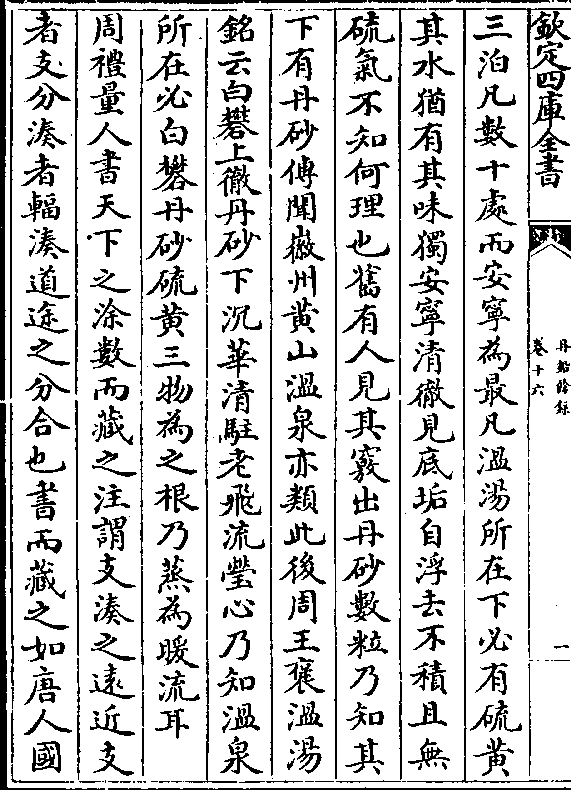 欽定四庫全書
丹鉛餘録
卷十六
一
三泊凡數十處而安寧為最凡溫湯所在下必有硫黄
其水猶有其味獨安寧清徹見底垢自浮去不積且無
硫氣不知何理也舊有人見其竅出丹砂數粒乃知其
下有丹砂傳聞㣲州黄山溫泉亦類此後周王襃溫湯
銘云白礬上徹丹砂下沉華清駐老飛流瑩心乃知溫泉
所在必白礬丹砂硫黄三物為之根乃蒸為暖流耳
周禮量人書天下之涂數而藏之注謂支湊之遠近支
者支分湊者輻湊道途之分合也書而藏之如唐人國